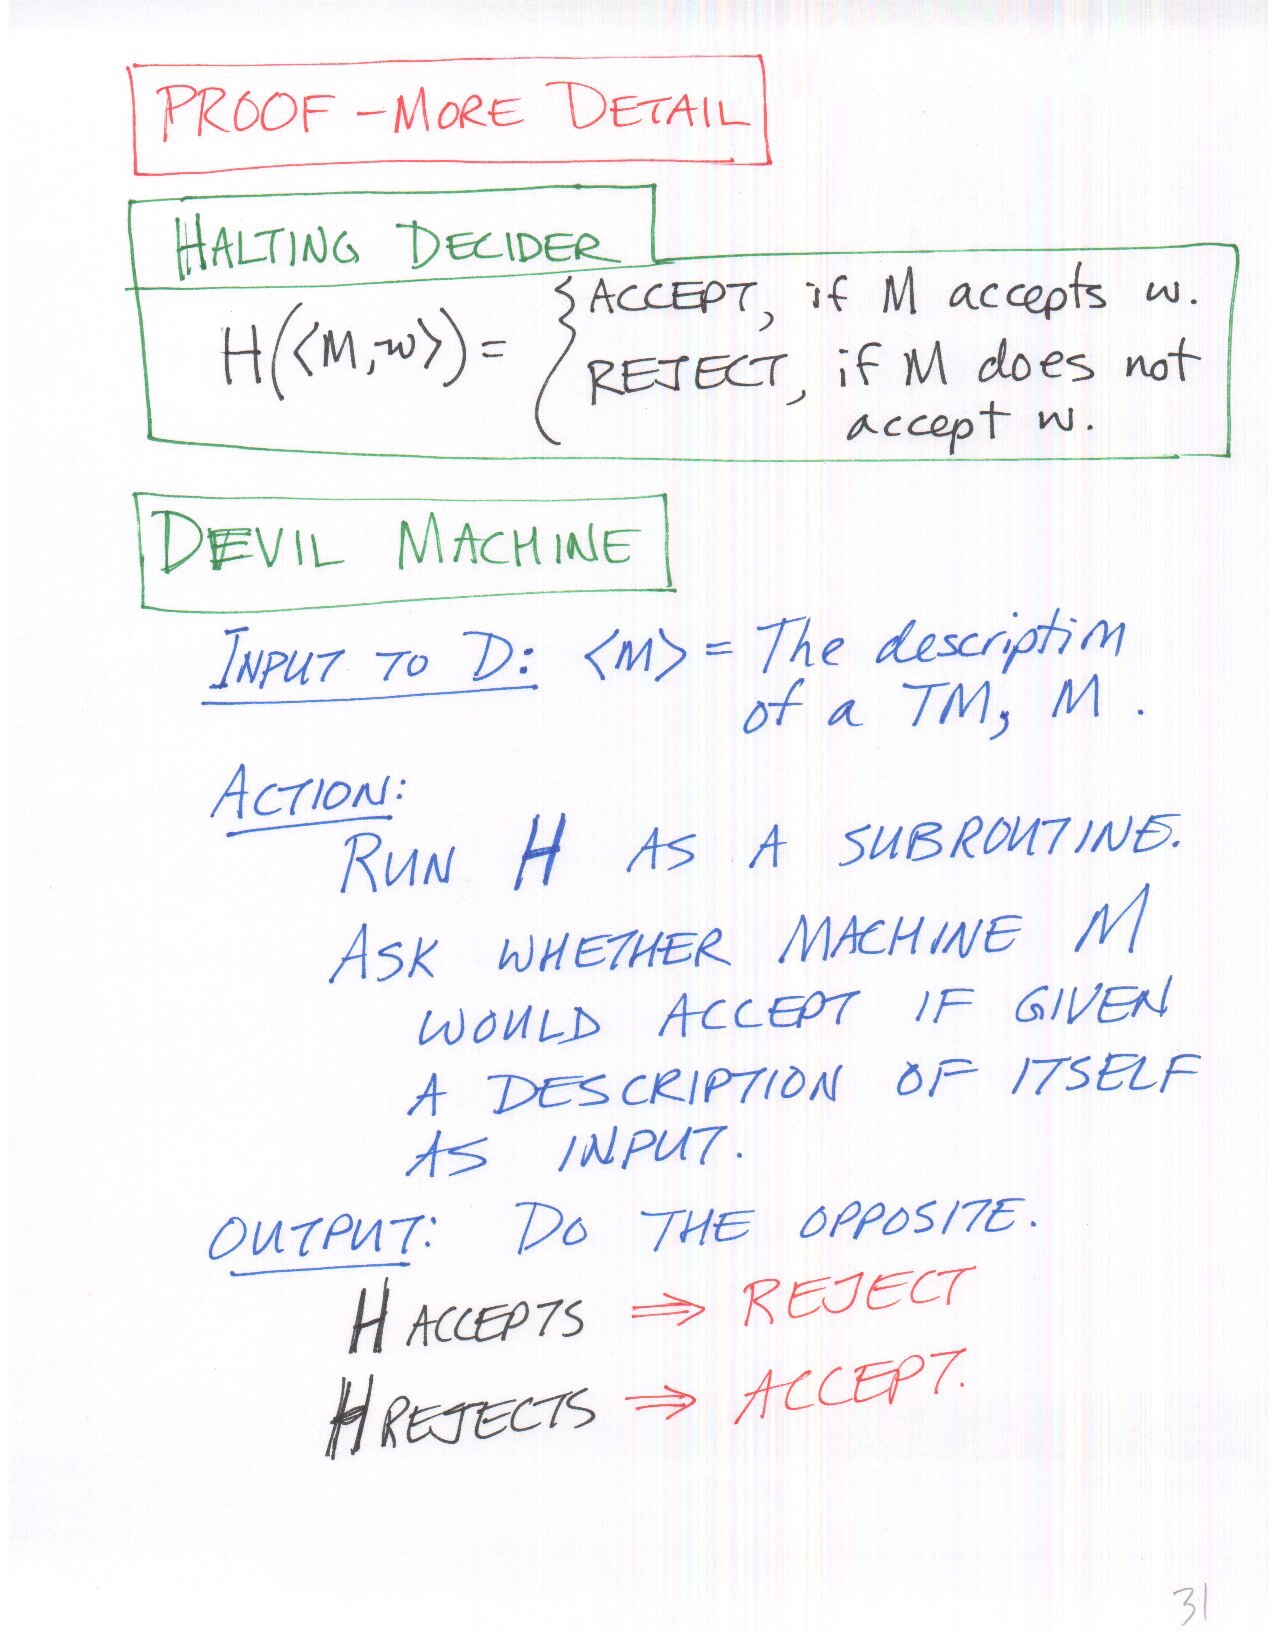 PROOF - MORE DETAIL
HALTING DECIDER
H(⟨M,w⟩) = { ACCEPT, if M accepts w.
REJECT, if M does not
accept w.
DEVIL MACHINE
INPUT TO D: ⟨M⟩ = The description
of a TM, M.
ACTION:
RUN H AS A SUBROUTINE.
ASK WHETHER MACHINE M
WOULD ACCEPT IF GIVEN
A DESCRIPTION OF ITSELF
AS INPUT.
OUTPUT: DO THE OPPOSITE.
H ACCEPTS ⇒ REJECT
H REJECTS ⇒ ACCEPT.
31